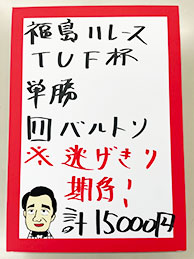 福島11レース
TUF杯
単勝
11バルトソ
※逃げきり
期待!
計15000円